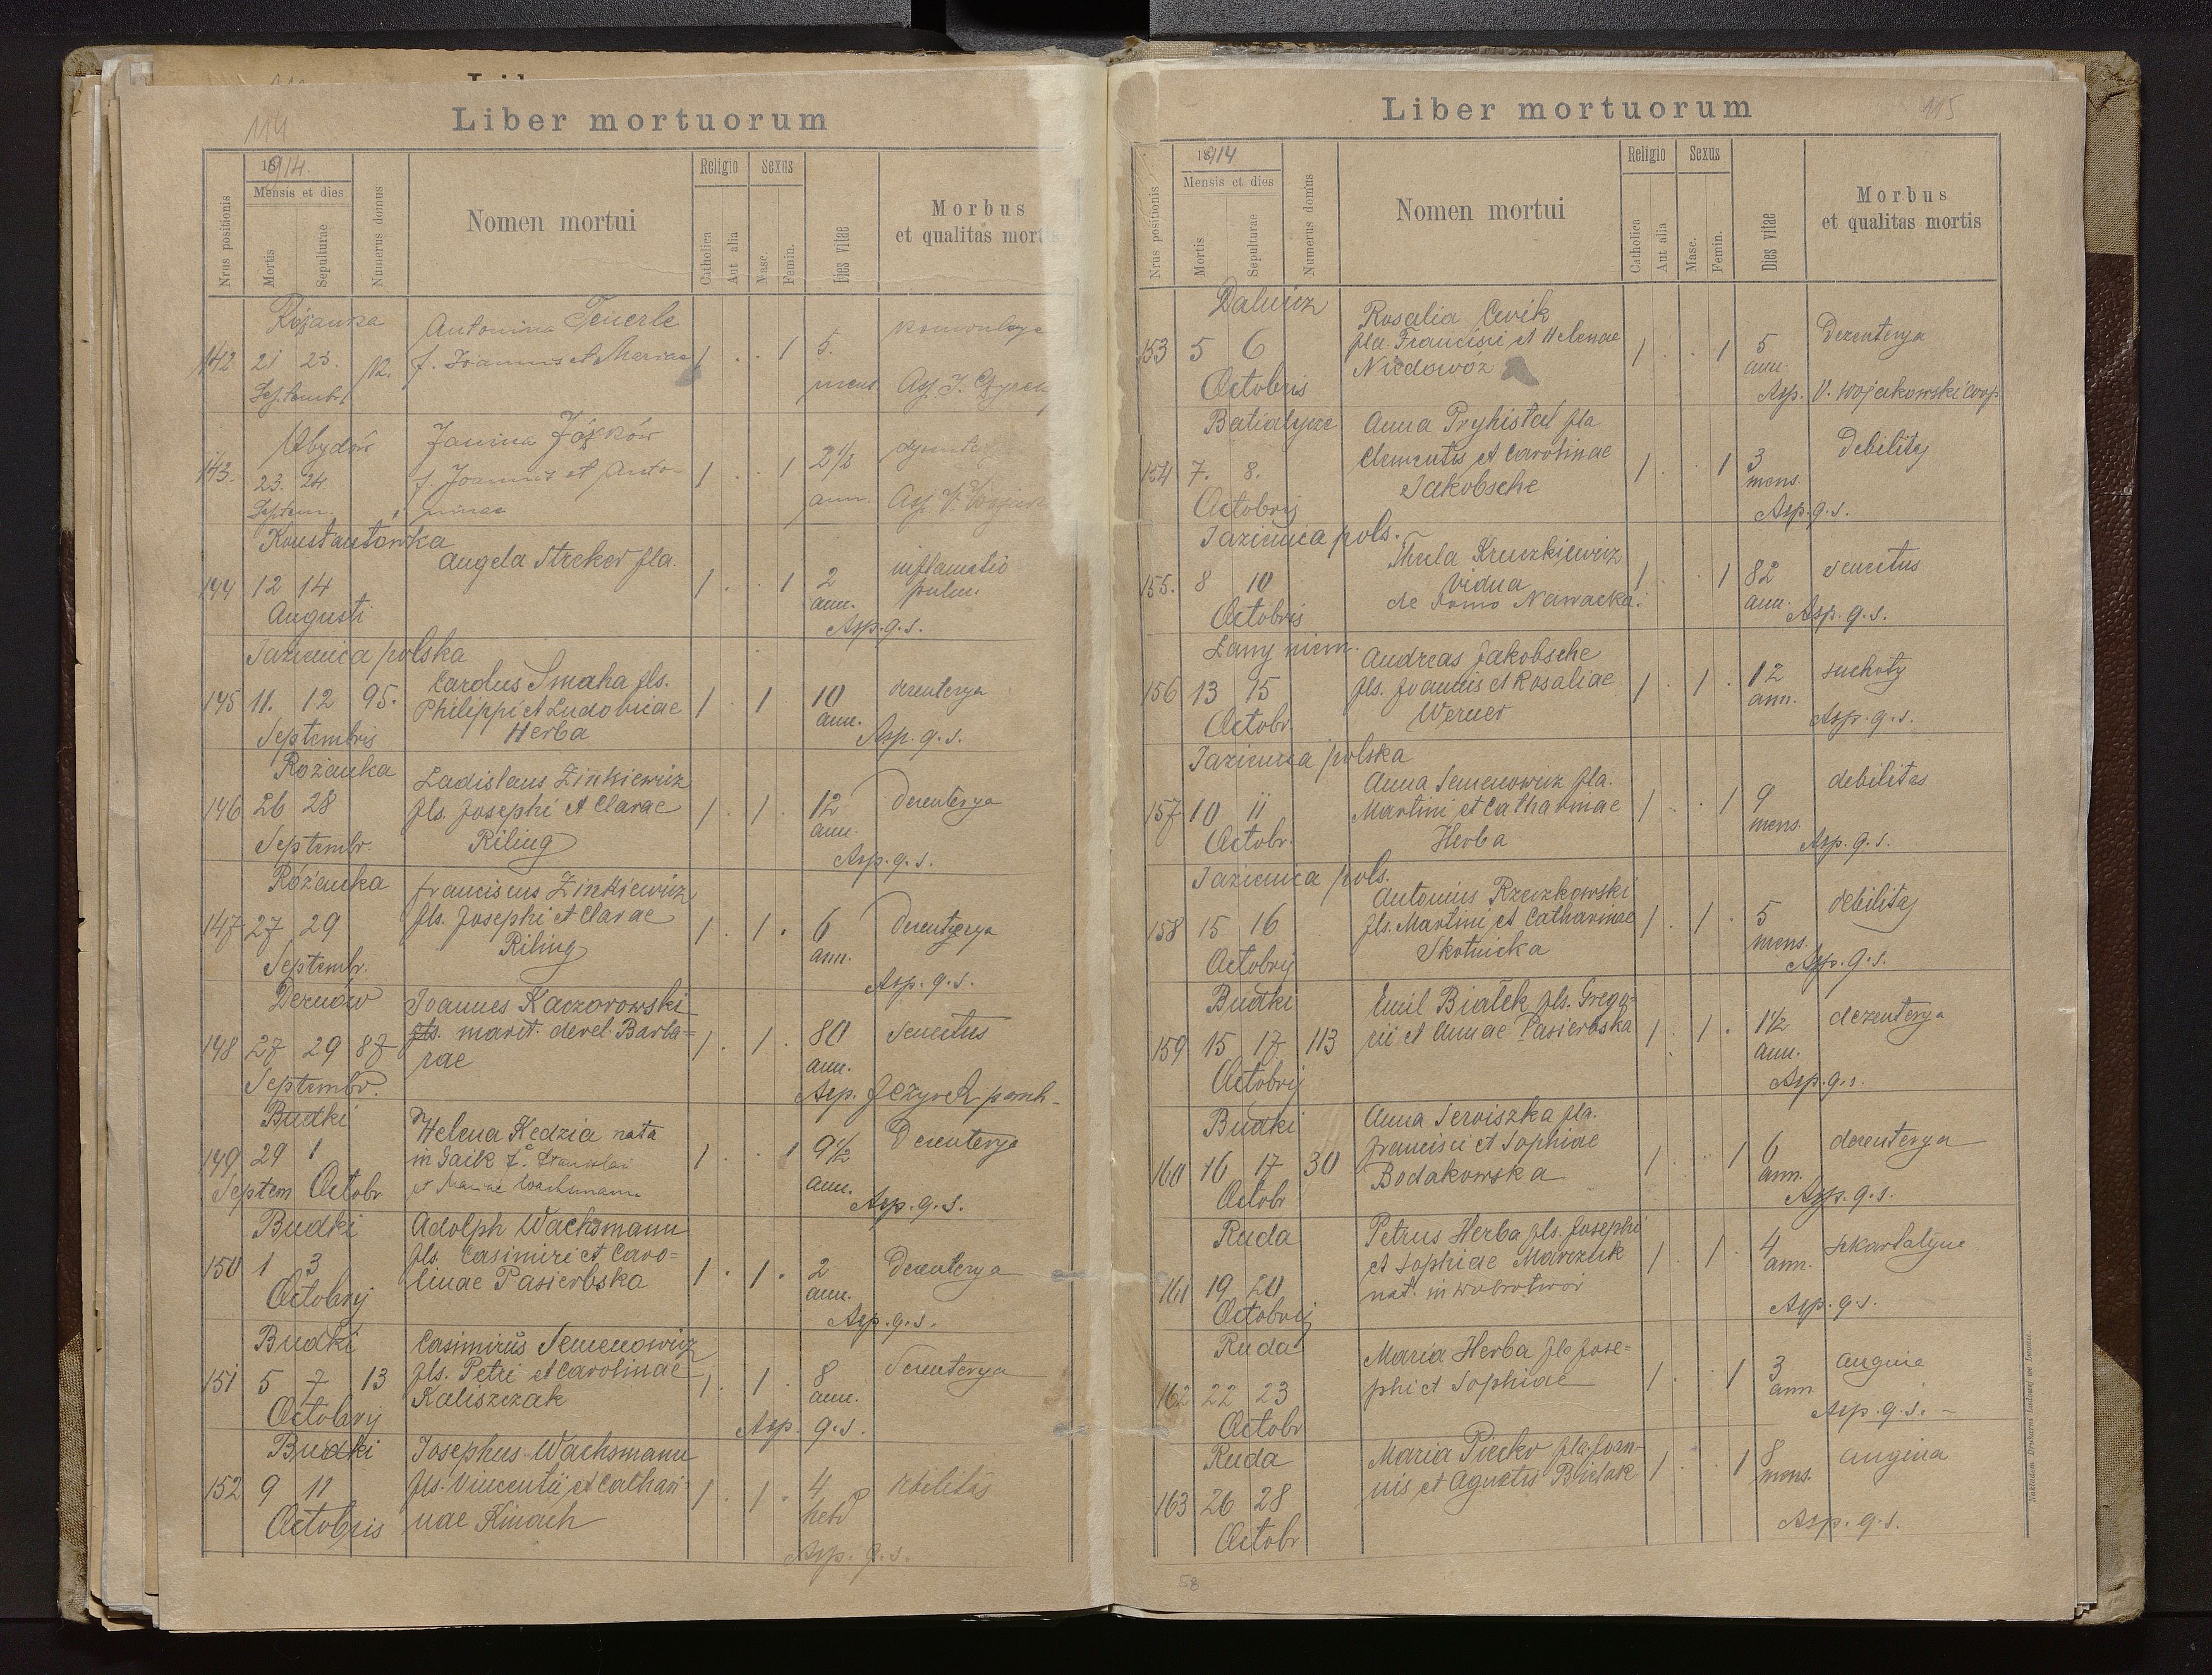 114
Liber mortuorum
Nrus positionis
1914.
Mensis et dies
Mortis
Sepulturae
Numerus domus
Nomen mortui
Religio
Catholica
Aut alia
Sexus
Masc.
Femin.
Dies vitae
Morbus
et qualitas mortis
Antonina
142 21 23. 12. f. Joannis et Mariae 1 . . 1 5.
Septembr mens Asp. J.
Janina
143. 23. 24. f. Joannis et Anto- 1 . . 1 2 1/2
Septem. ninae ann. Asp. V.
Konstantówka
Angela Streker fla. inflamatio
144 12 14 1 . . 1 2 pulm.
Augusti ann.
Asp. q. s.
Jazienica polska
Carolus Smaha fls.
145 11. 12 95. Philippi et Ludovicae 1 . 1 10 dezenterya
Septembris Herba ann. Asp. q. s.
Rożanka
Ladislaus Zinkiewicz
146 26 28 fls. Josephi et Clarae 1 . 1 . 12 dezenterya
Septembr. Riling ann.
Asp. q. s.
Różanka
Franciscus Zinkiewicz
147 27 29 fls. Josephi et Clarae 1 . 1 . 6 dezenterya
Septembr. Riling ann.
Asp. q. s.
Dernów
Joannes Kaczorowski
148 27 29 87 fls. marit. derel. Barba- 1 . 1 . 80 senectus
Septembr. rae ann.
Asp.
Budki
Helena Kedzia nata
149 29 1 in Gaik f. Stanislai 1 . . 1 9 1/2 Dezenterya
Septem Octobr et Mariae Wachsmann ann.
Asp. q. s.
Budki
Adolph Wachsmann
150 1 3 fls. Casimiri et Caro- 1 . 1 . 2 Dezenterya
Octobrij linae Pasierbska ann.
Asp. q. s.
Budki
Casimirus Semenowicz
151 5 7 13 fls. Petri et Carolinae 1 . 1 . 8 Dezenterya
Octobrij Kaliszczak ann.
Asp. q. s.
Budki
Josephus Wachsmann
152 9 11 fls. Vincentii et Cathari- 1 . 1 . 4 debilitas
Octobris nae Kinach hebd
Asp. q. s.
115
Liber mortuorum
Nrus positionis
1914
Mensis et dies
Mortis
Sepulturae
Numerus domus
Nomen mortui
Religio
Catholica
Aut alia
Sexus
Masc.
Femin.
Dies vitae
Morbus
et qualitas mortis
Dalnicz
Rosalia Cwik
153 5 6 fla. Francisci et Helenae 1 . . 1 5 Dezenterya
Octobris Niedowóz ann.
Asp. V. Wojakowski coop.
Batiatycze
Anna Pryhistal fla
154 7. 8. Clementis et Carolinae 1 . . 1 3 debilitas
Octobrij Jakobsche mens.
Asp. q. s.
Jazienica pols.
Thecla Kruczkiewicz
155. 8 10 vidua 1 . . 1 82 senectus
Octobris de domo Nawacka. ann.
Asp. q. s.
Lany niem.
Andreas Jakobsche
156 13 15 fls. Joannis et Rosaliae 1 . 1 . 12 suchoty
Octobr. Werner ann.
Asp. q. s.
Jazienica polska
Anna Semenowicz fla.
157 10 11 Martini et Catharinae 1 . . 1 9 debilitas
Octobr. Herba mens.
Asp. q. s.
Jazienica pols.
Antonius Rzeczkowski
158 15 16 fls. Martini et Catharinae 1 . 1 . 5 debilitas
Octobrij Skotnicka mens.
Asp. q. s.
Budki
Emil Białek fls. Grego-
159 15 17 113 rii et Annae Pasierbska 1 . 1 . 1 1/2 dezenterya
Octobrij ann.
Asp. q. s.
Budki
Anna Serwiszka fla.
160 16 17 30 Francisci et Sophiae 1 . . 1 6 dezenterya
Octobr Bodakowska ann.
Asp. q. s.
Ruda
Petrus Herba fls. Josephi
161 19 20 et Sophiae Marczuk 1 . 1 . 4 szkarlatyna
Octobrij nat. in Dobrotwor ann.
Asp. q. s.
Ruda
Maria Herba fla Jose-
162 22 23 phi et Sophiae 1 . . 1 3 angina
Octobr ann
Asp. q. s. -
Ruda
Maria Piecko fla. Joan-
163 26 28 nis et Agnetis Bielak 1 . . 1 8 angina
Octobr mens.
Asp. q. s.
58
Nakładem Drukarni Ludowej we Lwowie.